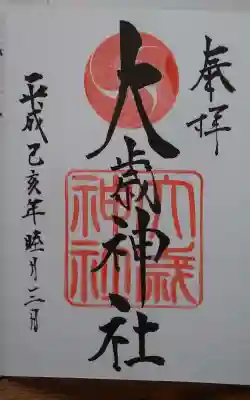 奉拝
大歳神社
大歳神社
平成己亥年睦月二日